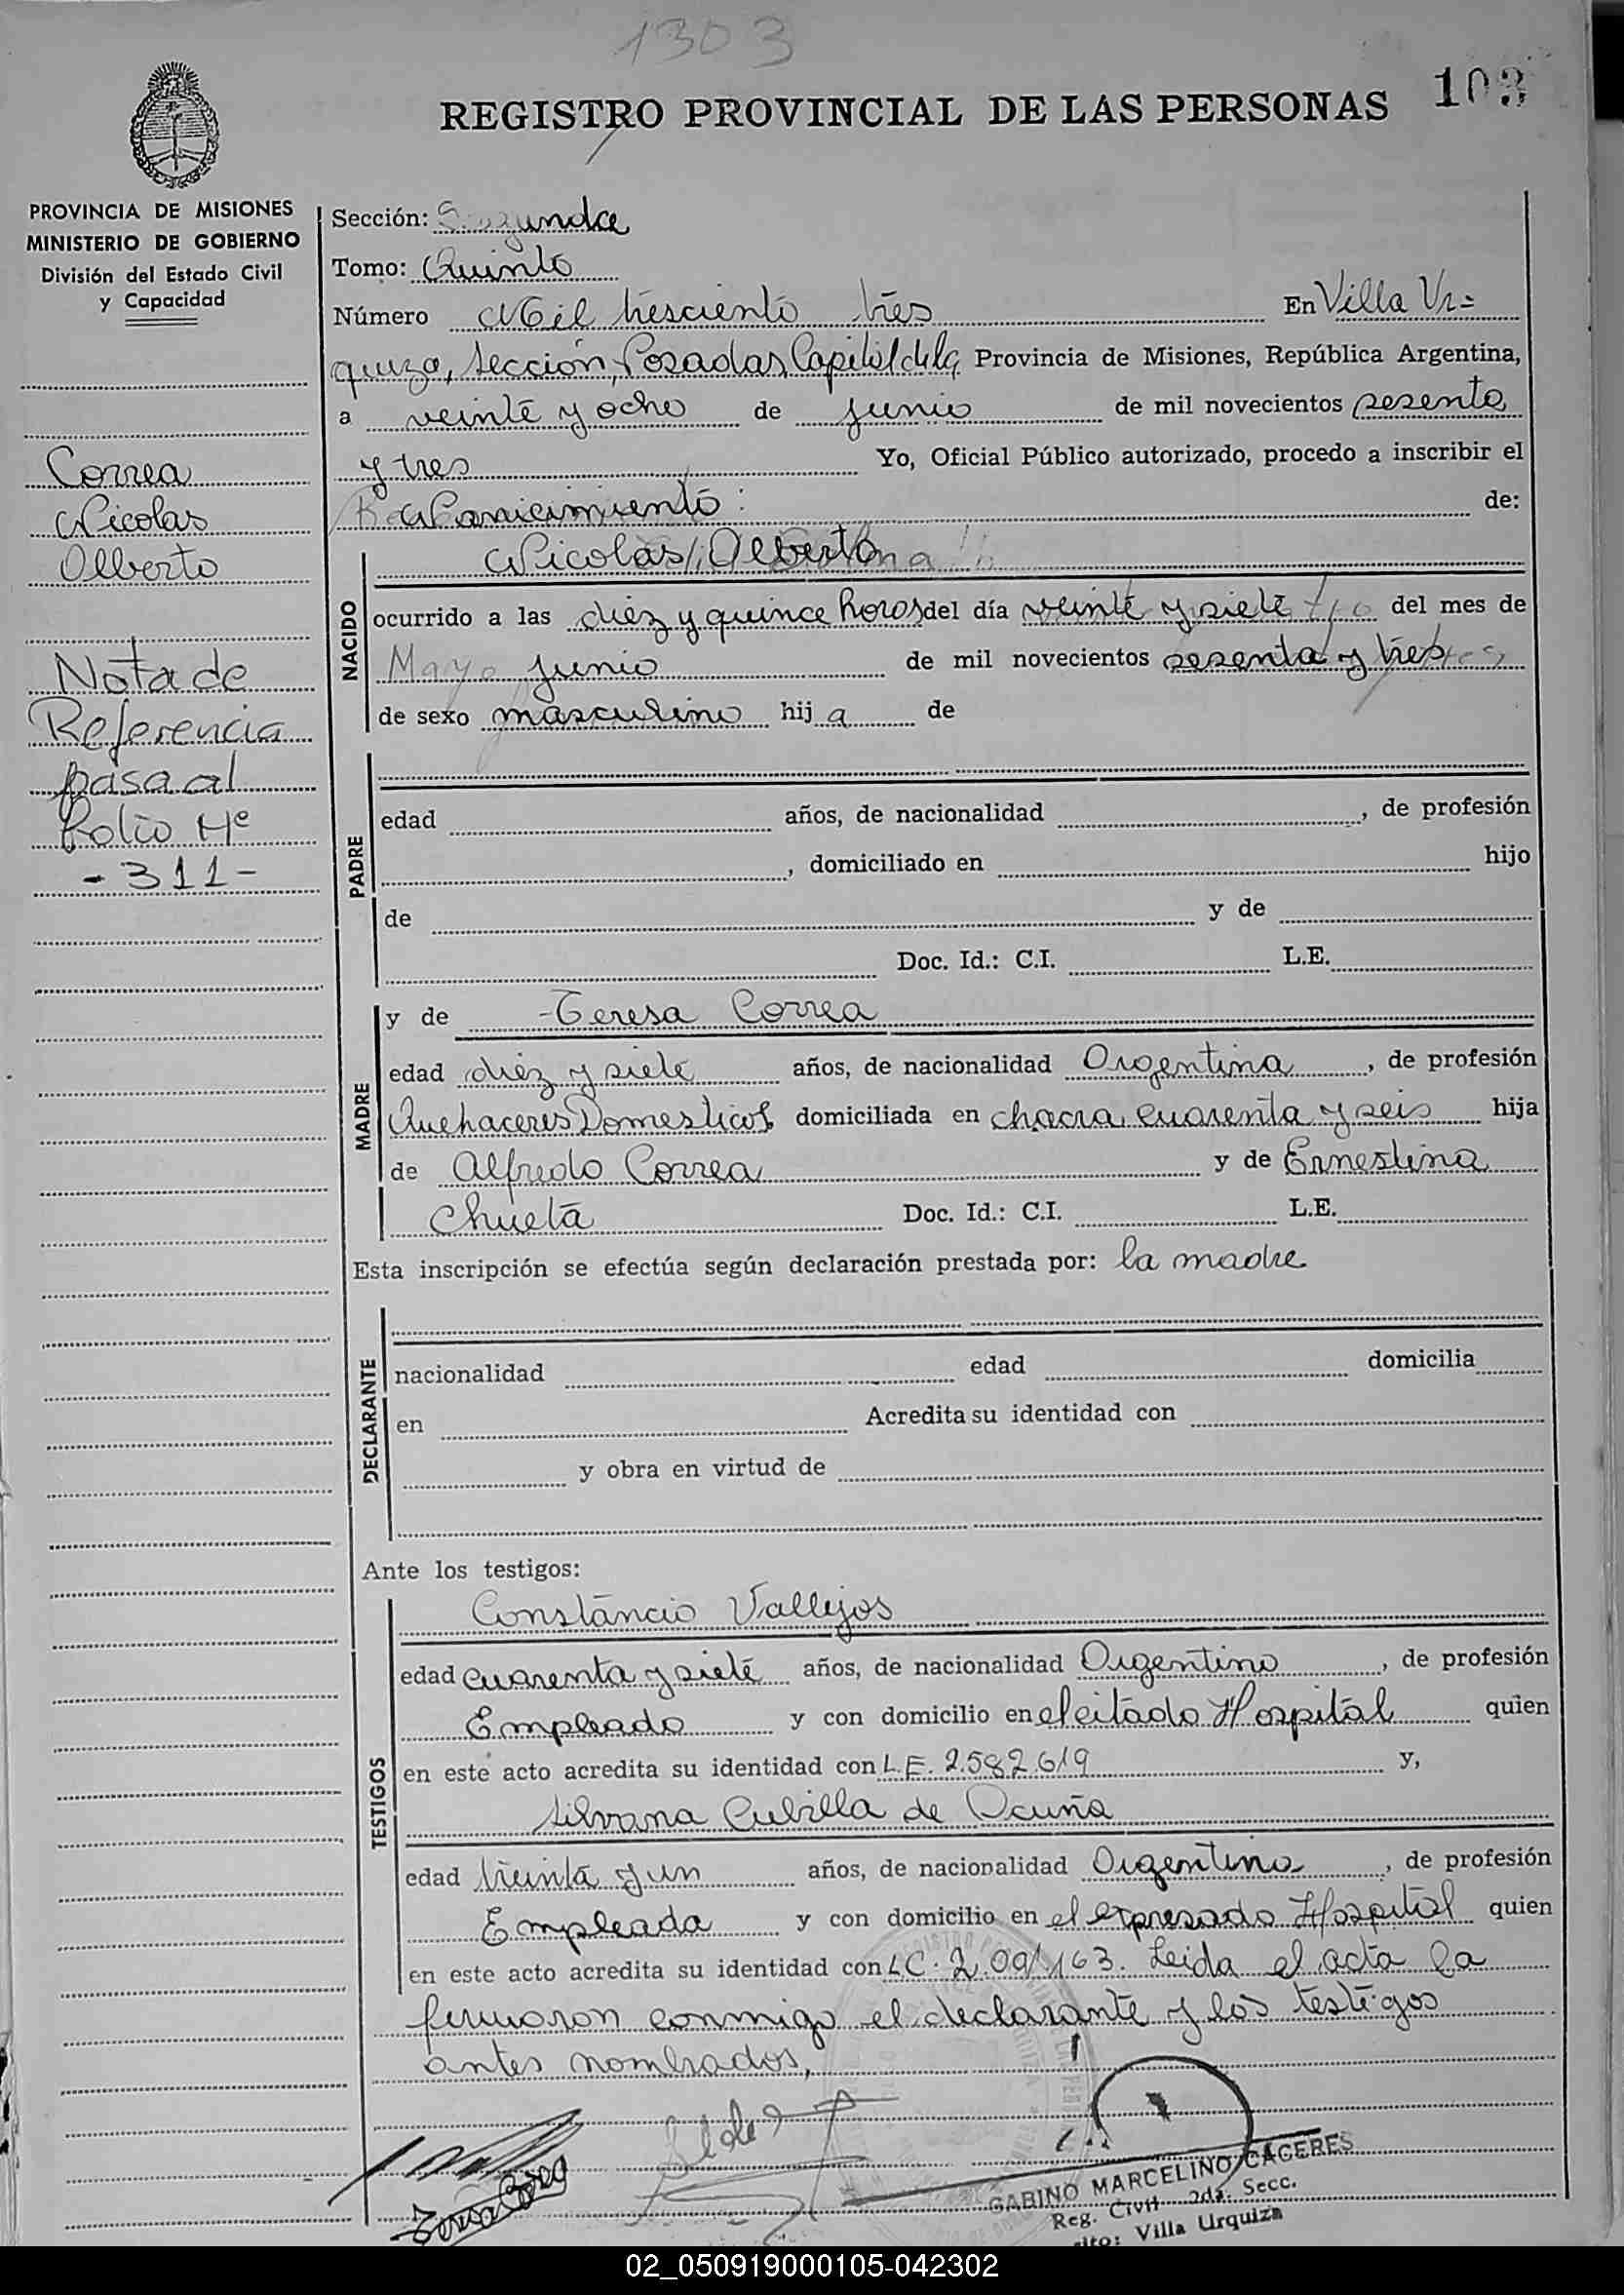 1303
REGISTRO PROVINCIAL DE LAS PERSONAS 103
PROVINCIA DE MISIONES
MINISTERIO DE GOBIERNO
División del Estado Civil
y Capacidad
Correa
Nicolas
Alberto
Nota de
Referencia
pasa al
folio Nº
- 311 -
Sección: Segunda
Tomo: Quinto
Número Mil tresciento tres En Villa Ur=
quiza, Sección, Posadas, Capital de la Provincia de Misiones, República Argentina,
a veinte y ocho de junio de mil novecientos sesenta
y tres Yo, Oficial Público autorizado, procedo a inscribir el
Nanicimiento: de:
NACIDO
Nicolas Alberto
ocurrido a las diéz y quince horas del día veinte y siete del mes de
Mayo junio de mil novecientos sesenta y tres
de sexo masculino hij a de
PADRE
edad años, de nacionalidad , de profesión
, domiciliado en hijo
de y de
Doc. Id.: C.I. L.E.
MADRE
y de Teresa Correa
edad diéz y siete años, de nacionalidad Argentina , de profesión
Quehaceres Domesticos domiciliada en chacra cuarenta y seis hija
de Alfredo Correa y de Ernestina
Chueta Doc. Id.: C.I. L.E.
Esta inscripción se efectúa según declaración prestada por: la madre
DECLARANTE
nacionalidad edad domicilia
en Acredita su identidad con
y obra en virtud de
Ante los testigos:
TESTIGOS
Constancio Vallejos
edad cuarenta y siete años, de nacionalidad Argentino , de profesión
Empleado y con domicilio en el citado Hospital quien
en este acto acredita su identidad con L.E. 2.582.619 y,
Silvana Cubilla de Acuña
edad treinta y un años, de nacionalidad Argentina , de profesión
Empleada y con domicilio en el expresado Hospital quien
en este acto acredita su identidad con LC. 2.091.163. Leida el acta la
firmaron conmigo el declarante y los testigos
antes nombrados,
Teresa Correa
GABINO MARCELINO CACERES
Reg. Civil 2da. Secc.
Villa Urquiza
02_050919000105-042302